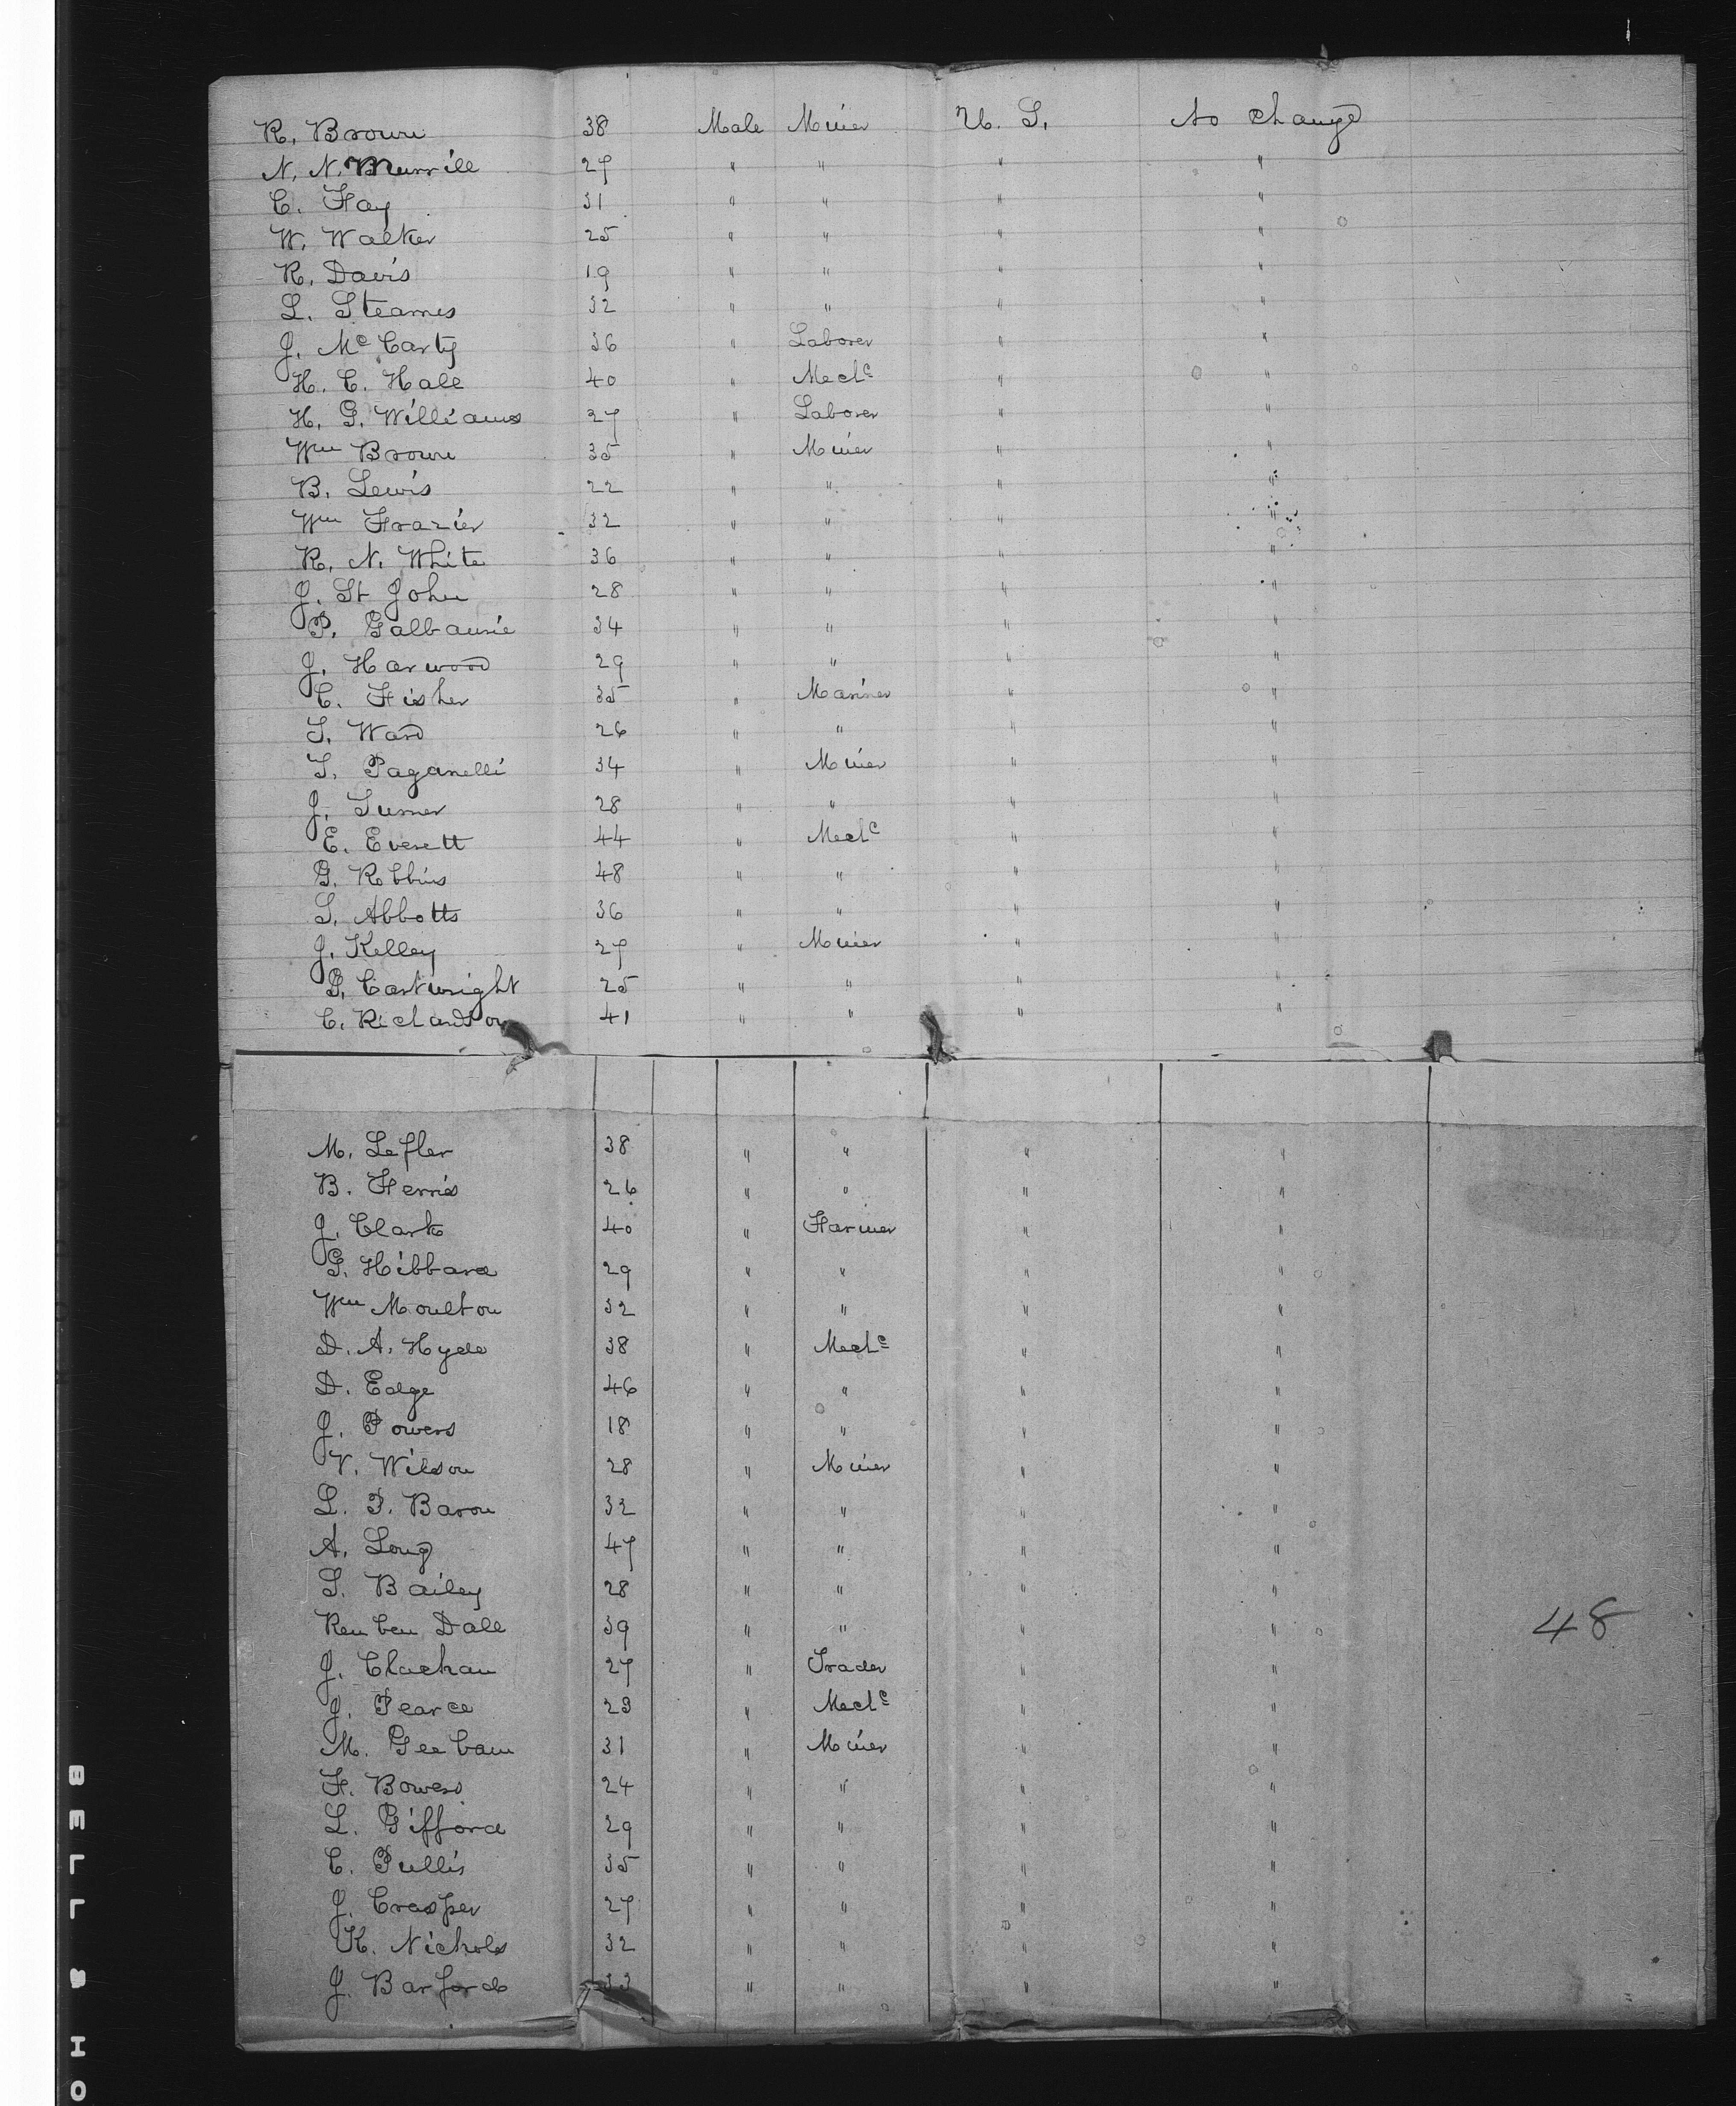 R. Brown 38 Male Miner U. S. No change
N. N. Murrill 27 " " " "
C. Fay 31 " " " "
W. Walker 25 " " " "
R. Davis 19 " " " "
L. Stearnes 32 " " " "
J. McCarty 36 " Laborer " "
H. C. Hall 40 " Mechc " "
H. G. Williams 27 " Laborer " "
Wm Brown 35 " Miner " "
B. Lewis 22 " " " "
Wm Frazier 32 " " " "
R. N. White 36 " " " "
J. St John 28 " " " "
P. 34 " " " "
J. Harwood 29 " " " "
C. Fisher 35 " Mariner " "
T. Ward 26 " " " "
T. Paganelli 34 " Miner " "
J. Turner 28 " " " "
E. Everett 44 " Mechc " "
G. Robbins 48 " " " "
S. Abbotts 36 " " " "
J. Kelley 27 " Miner " "
G. Cartwright 25 " " " "
C. Richardson 41 " " " "
M. Lefler 38 " " " "
B. Ferris 26 " " " "
J. Clark 40 " Farmer " "
G. Hibbard 29 " " " "
Wm Moulton 32 " " " "
D. A. Hyde 38 " Mechc " "
D. Edge 46 " " " "
J. Powers 18 " " " "
V. Wilson 28 " Miner " "
L. P. Baron 32 " " " "
A. Long 47 " " " "
S. Bailey 28 " " " "
Reuben Dall 39 " " " " 48
J. Clachan 27 " Trader " "
J. Pearce 23 " Mechc " "
M. 31 " Miner " "
F. Bowers 24 " " " "
L. Gifford 29 " " " "
C. Pullis 35 " " " "
J. Crasper 27 " " " "
K. Nichols 32 " " " "
J. Barford 33 " " " "
BELL & HO